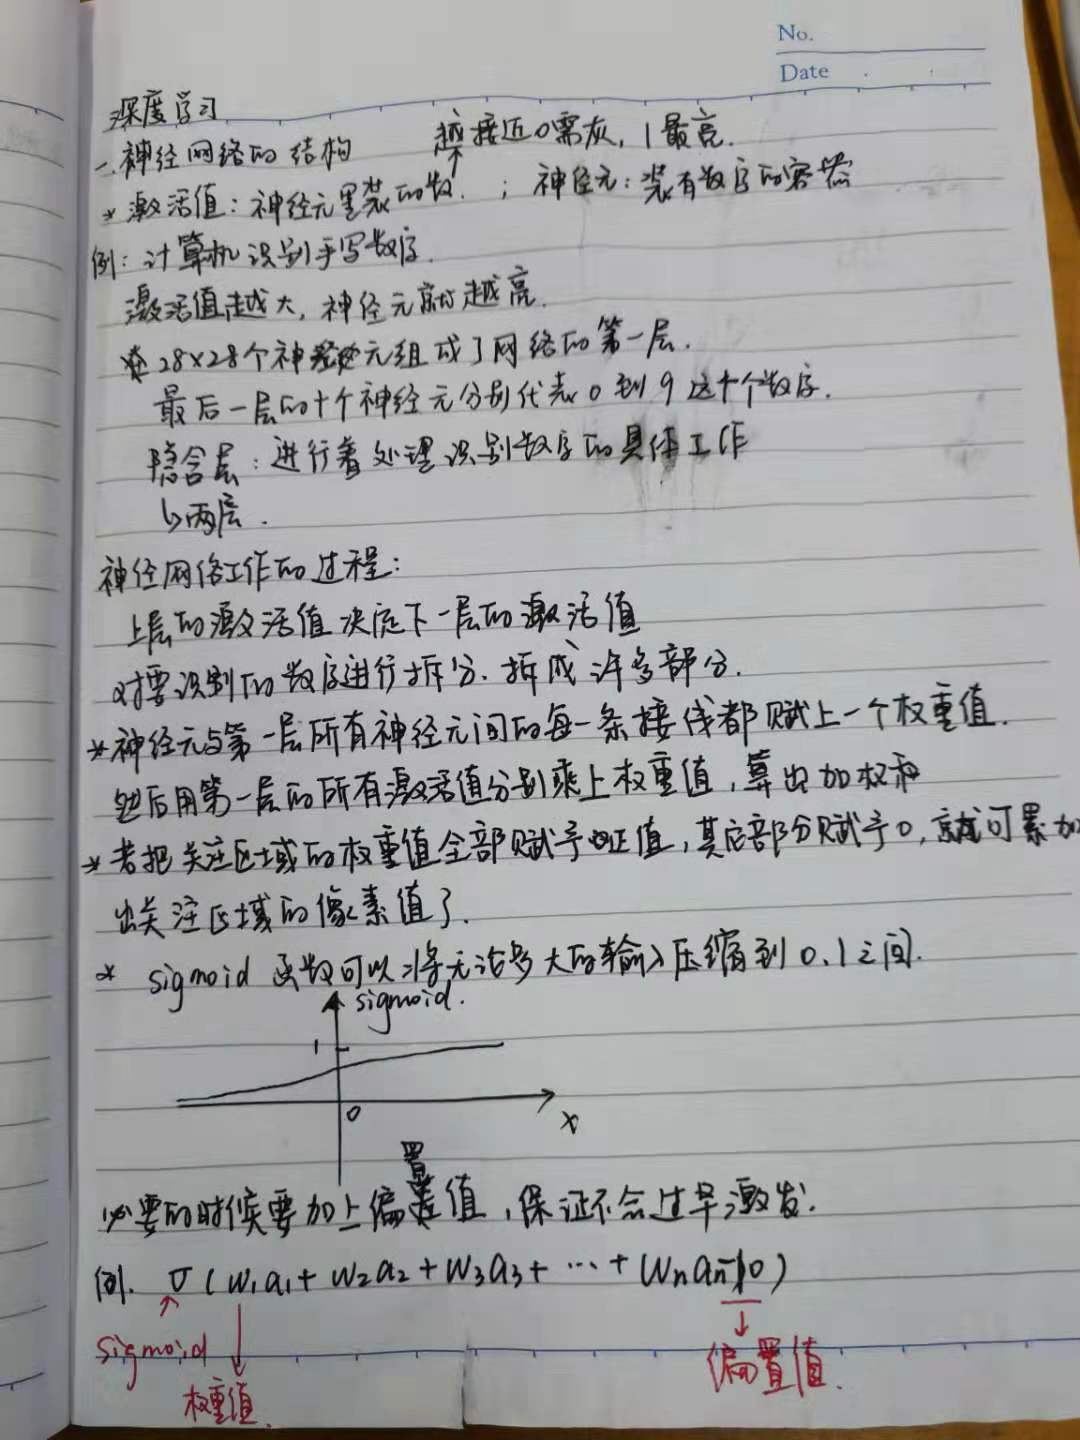 No.
Date
深度学习
一.神经网络的结构
越接近0需灰,1最亮.
* 激活值:神经元里装的数. ; 神经元:装有数字的容器
例:计算机识别手写数字.
激活值越大,神经元就越亮.
28×28个神经元组成了网络的第一层.
最后一层的十个神经元分别代表0到9这十个数字.
隐含层:进行着处理识别数字的具体工作
↳两层.
神经网络工作的过程:
上层的激活值决定下一层的激活值
对要识别的数字进行拆分.拆成许多部分.
*神经元与第一层所有神经元间的每一条接线都赋上一个权重值.
然后用第一层的所有激活值分别乘上权重值,算出加权和
*若把关注区域的权重值全部赋予正值,其它部分赋予0,就可累加
出关注区域的像素值了.
* sigmoid 函数可以将无论多大的输入压缩到0.1之间.
sigmoid.
1
0
x
必要的时候要加上偏置值,保证不会过早激发.
例. σ(w₁a₁+w₂a₂+w₃a₃+…+wₙaₙ-10)
sigmoid
权重值.
偏置值.